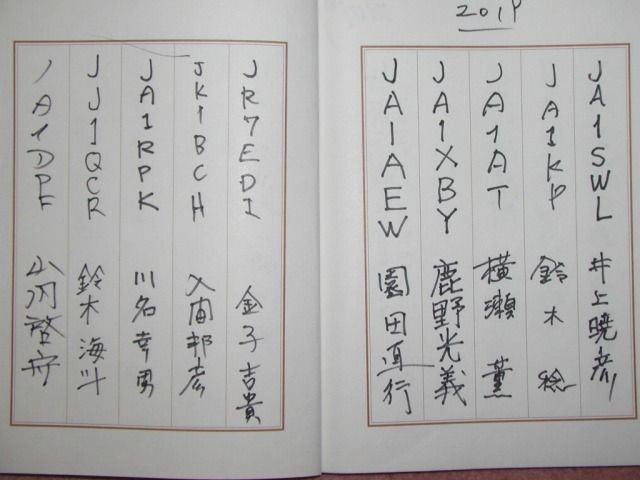 2019
JA1SWL 井上暁彦
JA1KP 鈴木
JA1AT 横瀬薫
JA1XBY 鹿野光義
JA1AEW 園田直行
JR7EDI 金子吉貴
JK1BCH 入宙邦彦
JA1RPK 川名幸男
JJ1QCR 鈴木海斗
JA1DPF